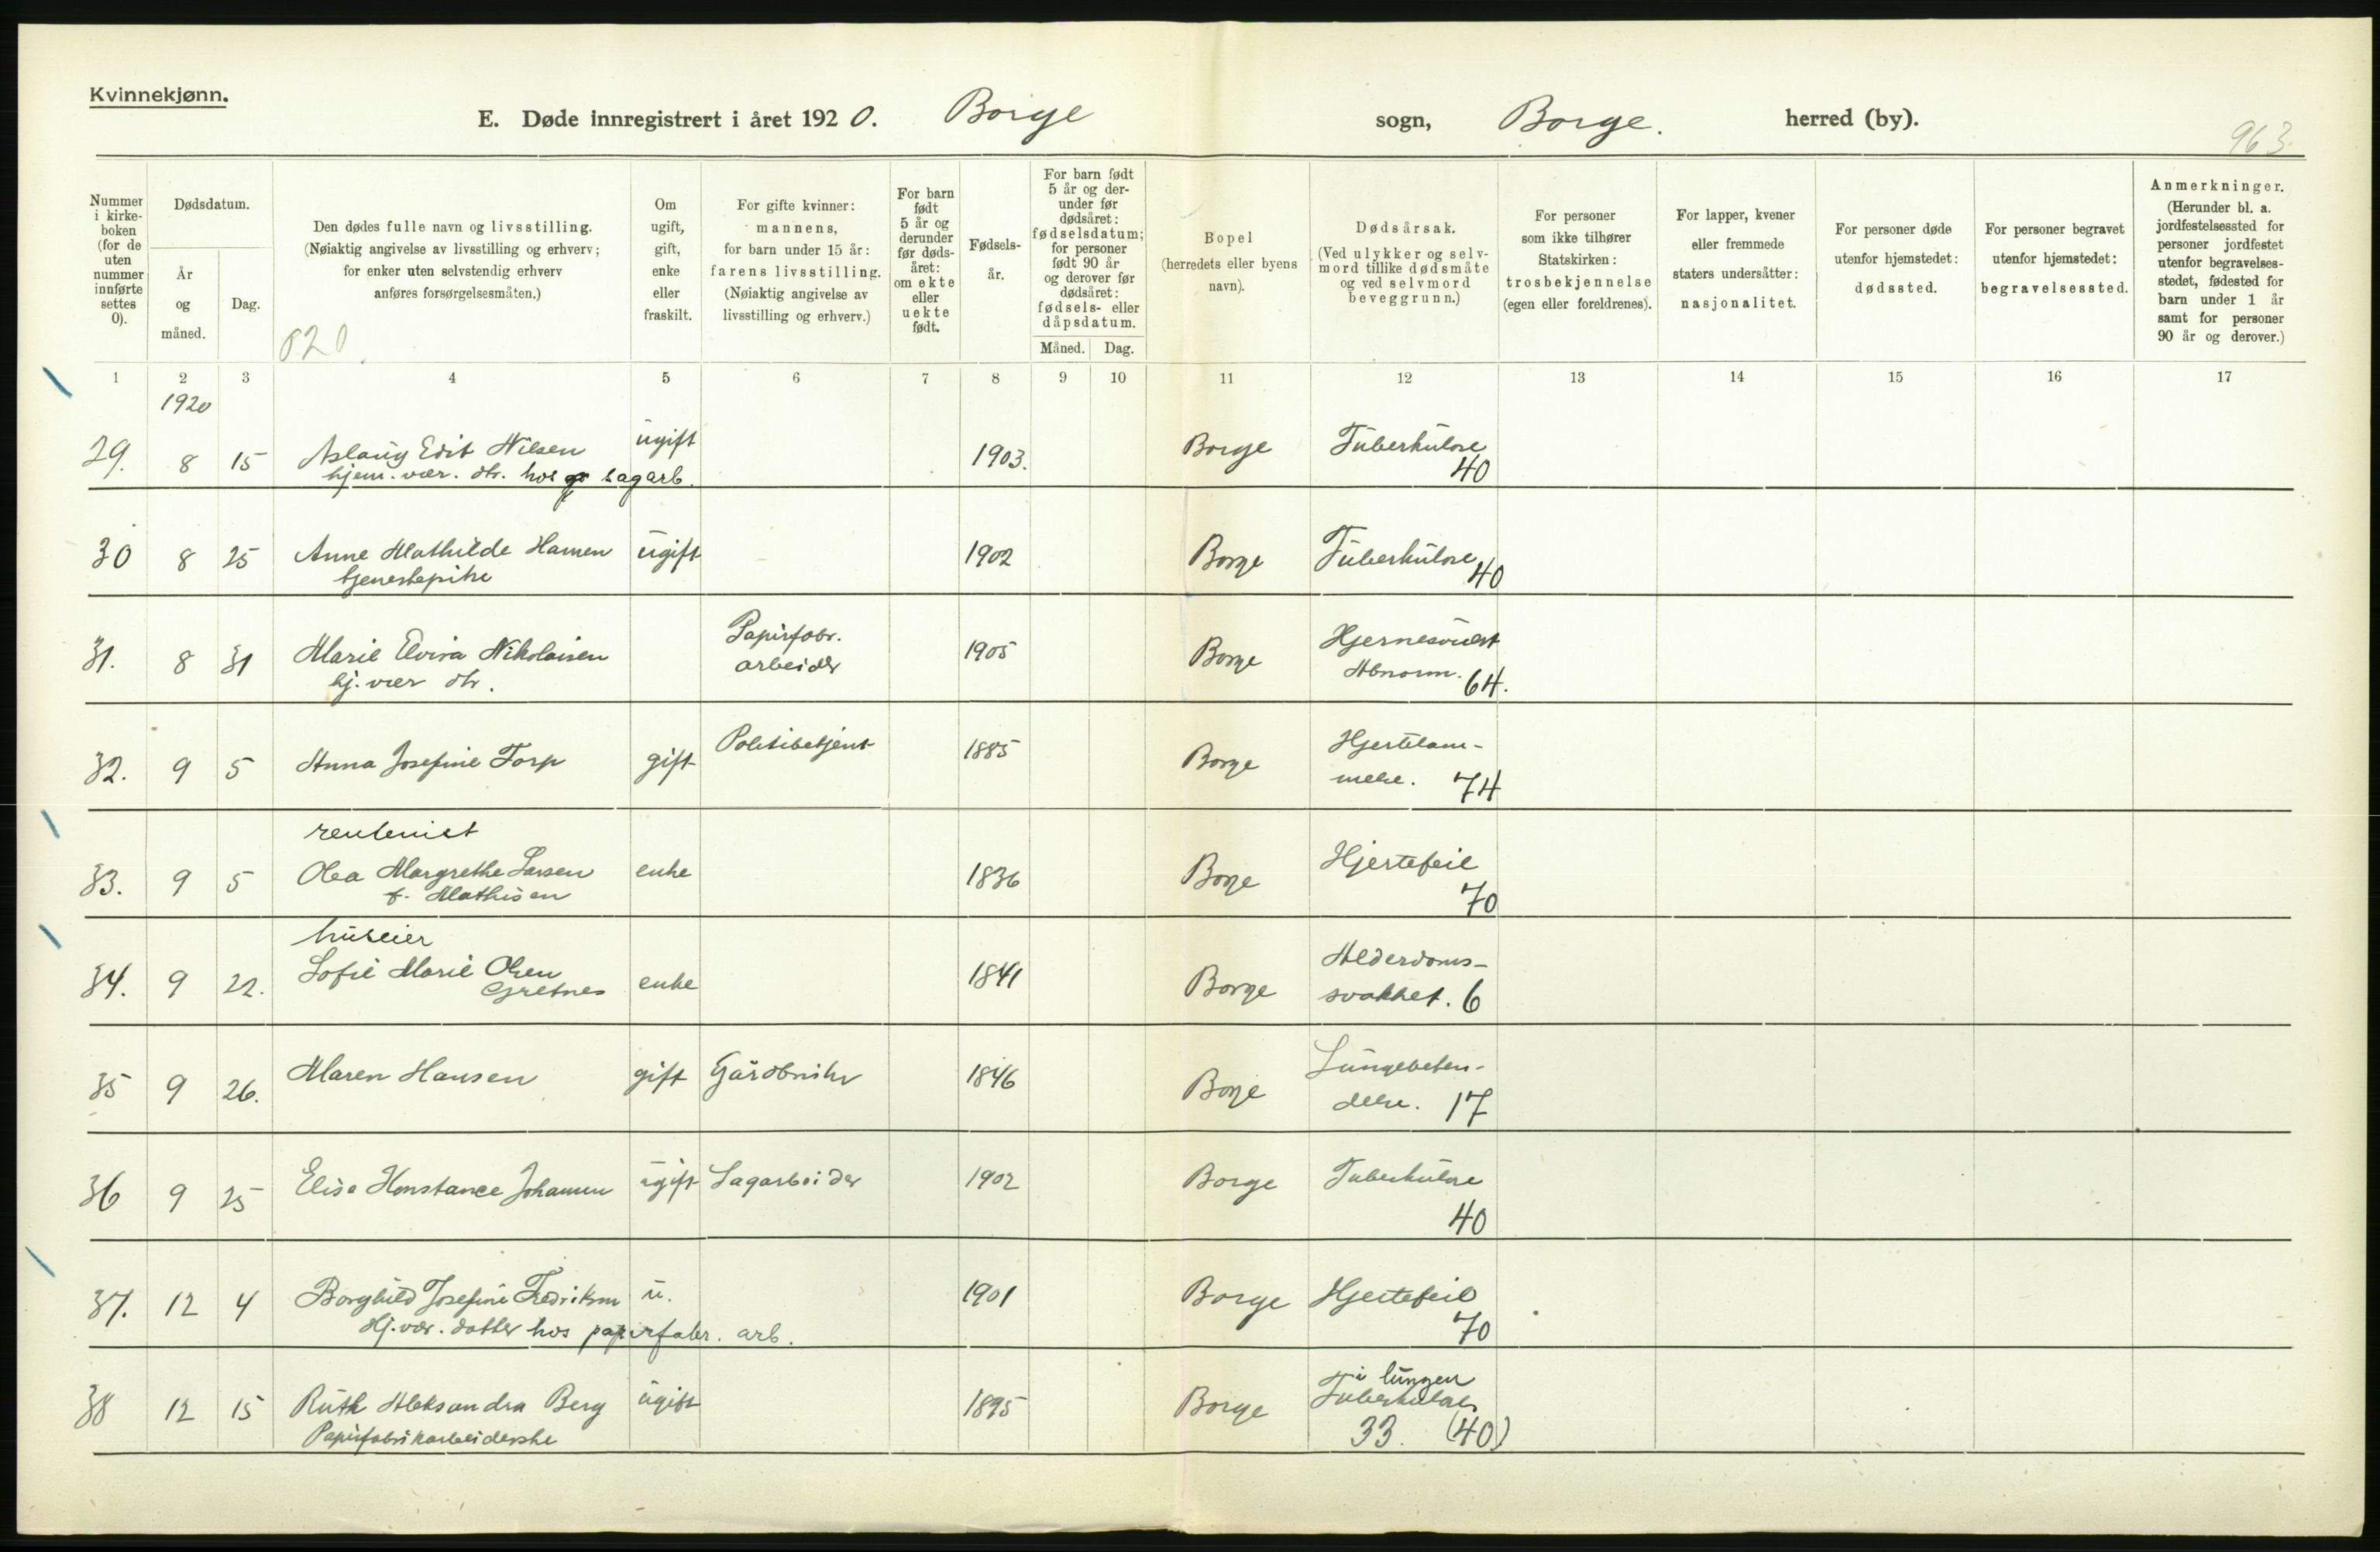 Kvinnekjønn.
E. Døde innregistrert i året 1920. Borge sogn, Borge. herred (by).
963.
Nummer i kirke-boken (for de uten nummer innførte settes 0).
Dødsdatum.
År og måned.
Dag.
Den dødes fulle navn og livsstilling.
(Nøiaktig angivelse av livsstilling og erhverv;
for enker uten selvstendig erhverv
anføres forsørgelsesmåten.)
020.
Om ugift, gift, enke eller fraskilt.
For gifte kvinner:
mannens,
for barn under 15 år:
farens livsstilling.
(Nøiaktig angivelse av
livsstilling og erhverv.)
For barn født 5 år og derunder før døds-året: om ekte eller uekte født.
Fødsels-år.
For barn født 5 år og der-under før dødsåret: fødselsdatum; for personer født 90 år og derover før dødsåret: fødsels- eller dåpsdatum.
Måned. Dag.
Bopel
(herredets eller byens
navn).
Dødsårsak.
(Ved ulykker og selv-
mord tillike dødsmåte
og ved selvmord
beveggrunn.)
For personer
som ikke tilhører
Statskirken:
trosbekjennelse
(egen eller foreldrenes).
For lapper, kvener
eller fremmede
staters undersåtter:
nasjonalitet.
For personer døde
utenfor hjemstedet:
dødssted.
For personer begravet
utenfor hjemstedet:
begravelsessted.
Anmerkninger.
(Herunder bl. a.
jordfestelsessted for
personer jordfestet
utenfor begravelses-
stedet, fødested for
barn under 1 år
samt for personer
90 år og derover.)
1 2 3 4 5 6 7 8 9 10 11 12 13 14 15 16 17
1920
29. 8 15 Aslaug Edit Nilsen ugift 1903. Borge Tuberkulose
hjem. vær. dtr. hos sagarb. 40
30 8 25 Anne Mathilde Hansen ugift 1902 Borge Tuberkulose
tjenestepike 40
31. 8 31 Marie Elvira Nikolaisen Papirfabr. arbeider 1905 Borge Hjernesvulst
hj. vær dtr. Abnorm. 64.
32. 9 5 Anna Josefine Torp gift Politibetjent 1885 Borge Hjertelam-
melse. 74
rentenist
33. 9 5 Olea Margrethe Larsen enke 1836 Borge Hjertefeil
f. Mathisen 70
huseier
34. 9 22. Sofie Marie Olsen enke 1841 Borge Alderdoms-
Gretnes svakhet. 6
35 9 26. Maren Hansen gift Gårdbruker 1846 Borge Lungebeten-
delse. 17
36 9 25 Elise Konstance Johansen ugift Sagarbeider 1902 Borge Tuberkulose
40
37. 12 4 Borghild Josefine Fredriksen u. 1901 Borge Hjertefeil
Hj. vær. datter hos papirfabr. arb. 70
i lungen
38 12 15 Ruth Aleksandra Berg ugift 1895 Borge Tuberkulose
Papirfabrikarbeiderske 33. (40)